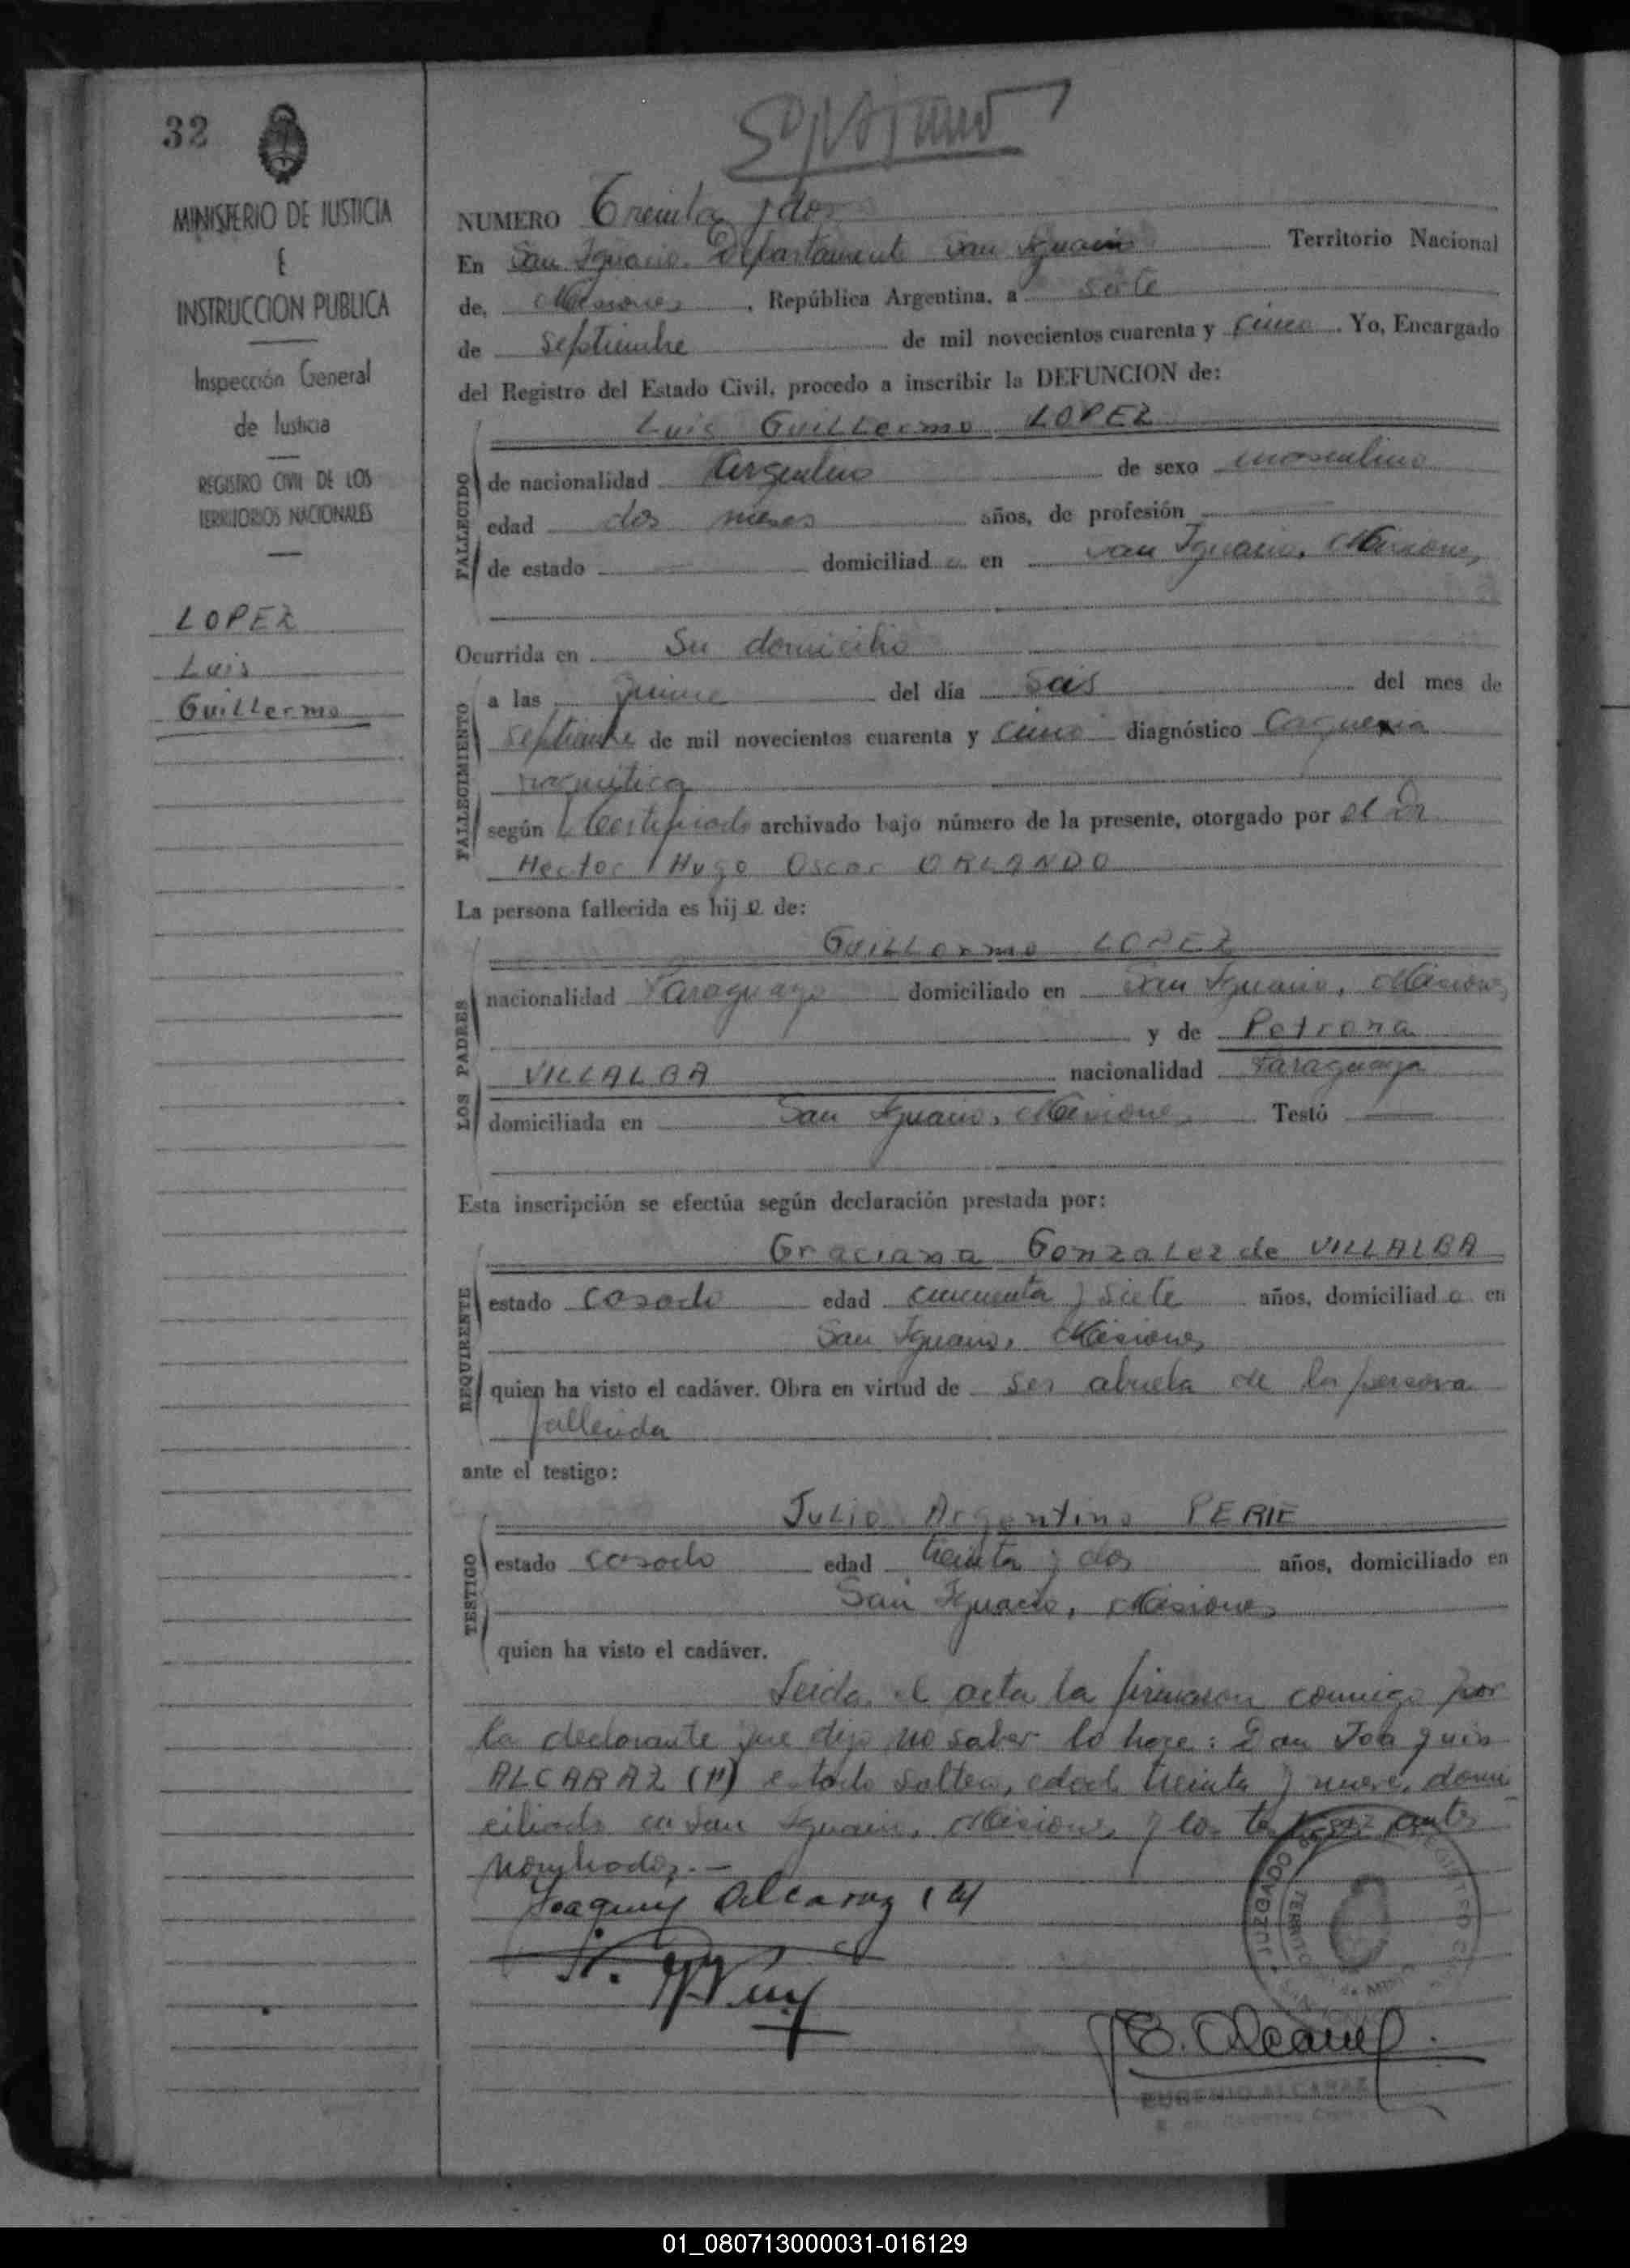 32
MINISTERIO DE JUSTICIA
E
INSTRUCCION PUBLICA
Inspección General
de Justicia
REGISTRO CIVIL DE LOS
TERRITORIOS NACIONALES
LOPEZ
Luis
Guillermo
NUMERO Treinta y dos
En San Ignacio. Departamento San Ignacio Territorio Nacional
de, Misiones, República Argentina, a siete
de septiembre de mil novecientos cuarenta y cinco. Yo, Encargado
del Registro del Estado Civil, procedo a inscribir la DEFUNCION de:
Luis Guillermo LOPEZ
FALLECIDO
de nacionalidad Argentino de sexo masculino
edad dos meses años, de profesión
de estado domiciliado en San Ignacio, Misiones
Ocurrida en Su domicilio
FALLECIMIENTO
a las quince del día seis del mes de
septiembre de mil novecientos cuarenta y cinco diagnóstico Caquexia
raquitica
según Certificado archivado bajo número de la presente, otorgado por el Dr
Hector Hugo Oscar ORLANDO
La persona fallecida es hijo de:
Guillermo LOPEZ
LOS PADRES
nacionalidad Paraguayo domiciliado en San Ignacio, Misiones
y de Petrona
VILLALBA nacionalidad Paraguaya
domiciliada en San Ignacio, Misiones Testó
Esta inscripción se efectúa según declaración prestada por:
Graciana Gonzalez de VILLALBA
REQUIRENTE
estado casado edad cincuenta y siete años, domiciliada en
San Ignacio, Misiones
quien ha visto el cadáver. Obra en virtud de ser abuela de la persona
fallecida
ante el testigo:
Julio Argentino PERIE
TESTIGO
estado casado edad treinta y dos años, domiciliado en
San Ignacio, Misiones
quien ha visto el cadáver.
Leida el acta la firmaron conmigo por
la declarante que dijo no saber lo hace: Don Joaquin
ALCARAZ (h) estado soltero, edad treinta y nueve, domi
ciliado en San Ignacio, Misiones y los testigos antes
nombrados.-
Joaquin Alcaraz (h)
E. Alcaraz
EUGENIO ALCARAZ
01_080713000031-016129